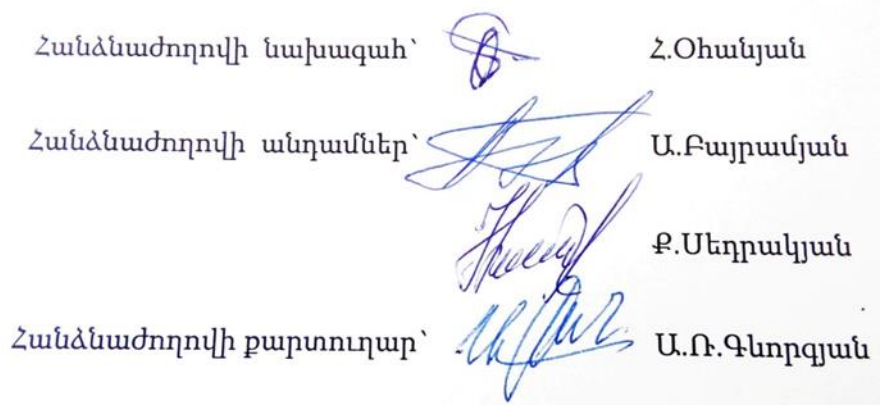 Հանձնաժողովի նախագահ՝ Հ.Օհանյան
Հանձնաժողովի անդամներ՝ Ա.Բայրամյան
Ք.Սեդրակյան
Հանձնաժողովի քարտուղար՝ Ա.Ռ.Գևորգյան